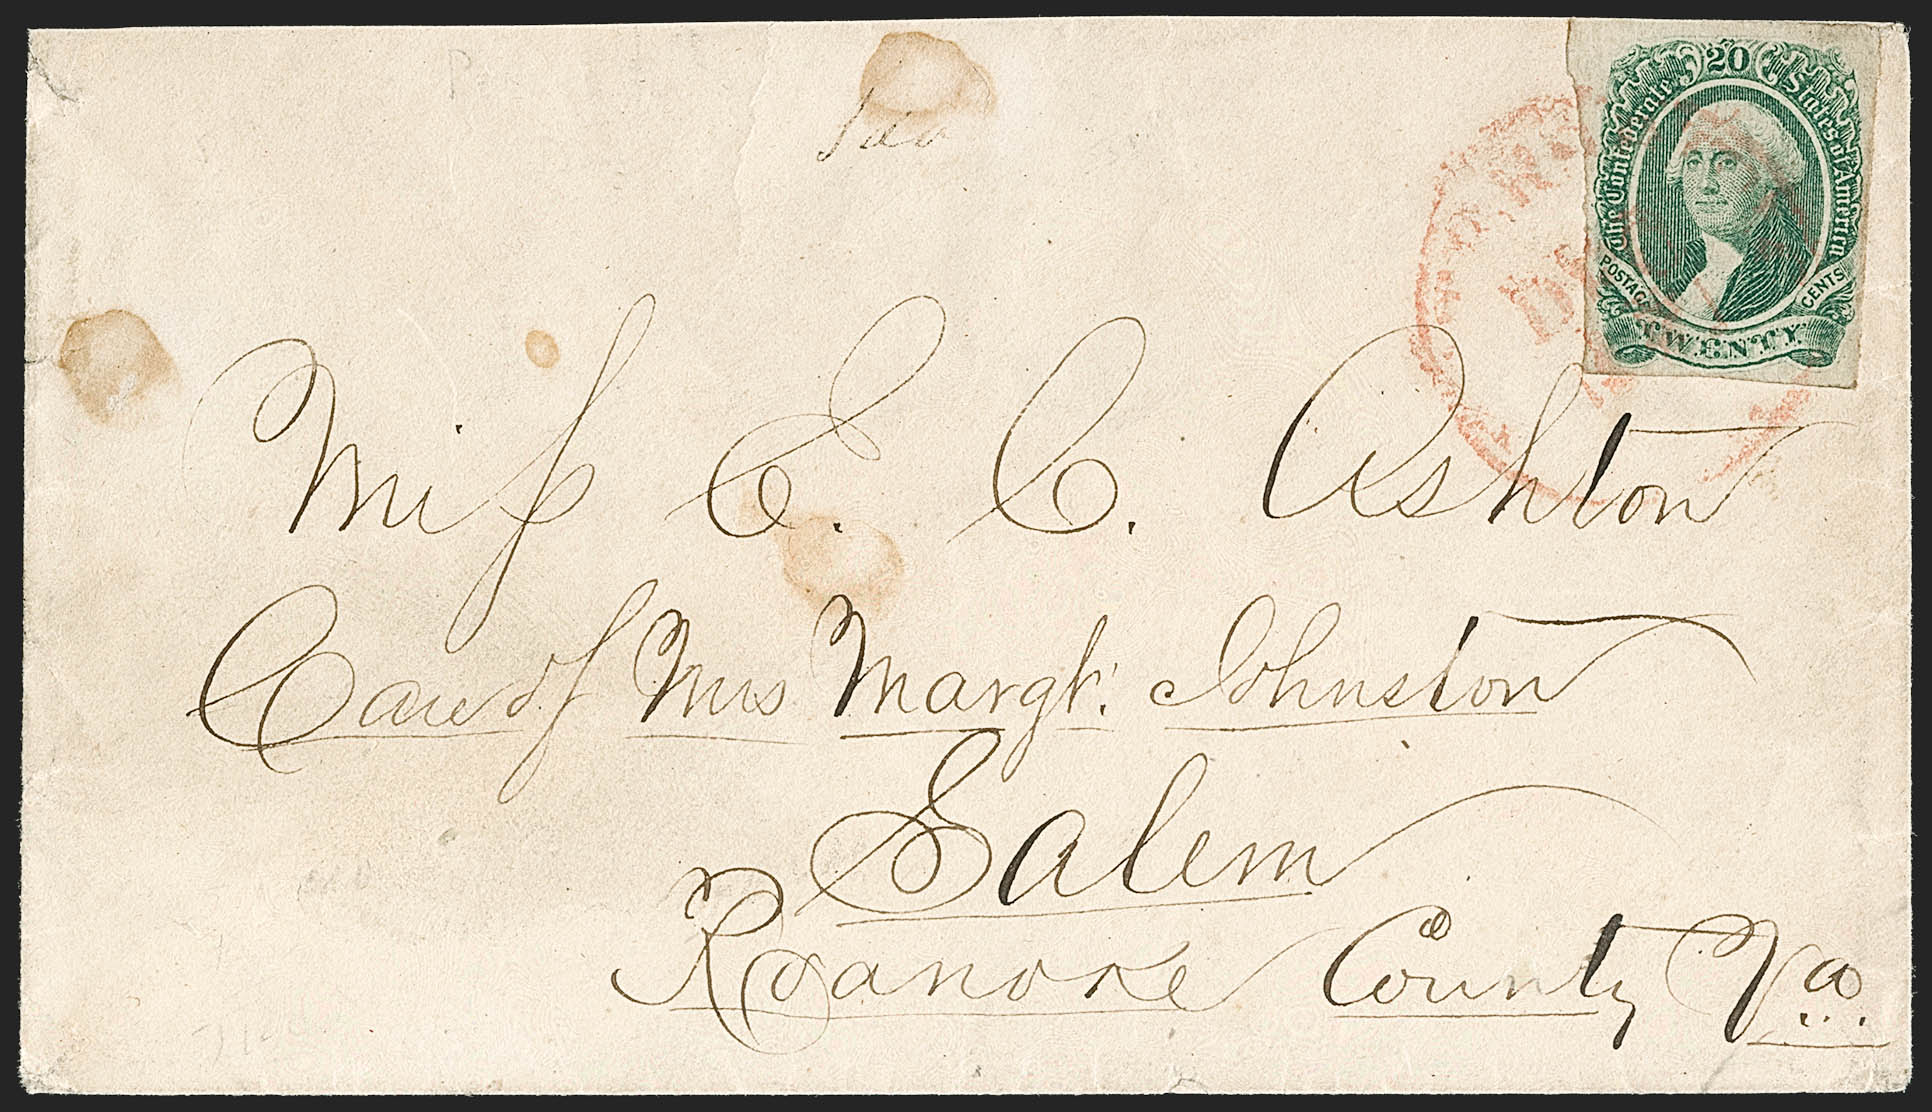 20
The Confederate States of America
POSTAGE CENTS
TWENTY
Miss E. C. Ashton
Care of Mrs Margt. Johnston
Salem
Roanoke County Va.